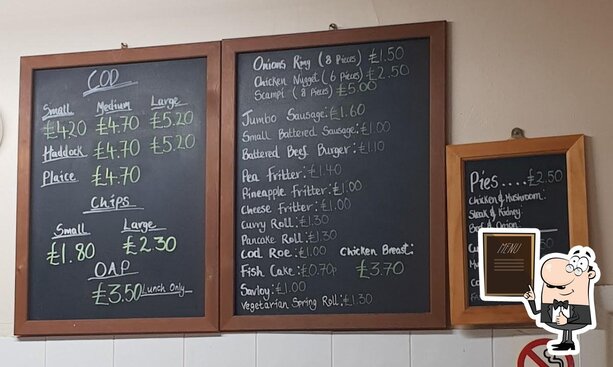 COD
Small Medium Large
£4.20 £4.70 £5.20
Haddock £4.70 £5.20
Plaice £4.70
Chips
Small Large
£1.80 £2.30
OAP
£3.50 Lunch Only
Onions Ring (8 Pieces) £1.50
Chicken Nugget (6 Pieces) £2.50
Scampi (8 Pieces) £5.00
Jumbo Sausage: £1.60
Small Battered Sausage: £1.00
Battered Beef Burger: £1.10
Pea Fritter: £1.40
Pineapple Fritter: £1.00
Cheese Fritter: £1.00
Curry Roll: £1.30
Pancake Roll: £1.30
Cod Roe: £1.00 Chicken Breast:
Fish Cake: £0.70p £3.70
Saveloy: £1.00
Vegetarian Spring Roll: £1.30
Pies.... £2.50
Chicken & Mushroom
Steak & Kidney
Beef & Onion
MENU